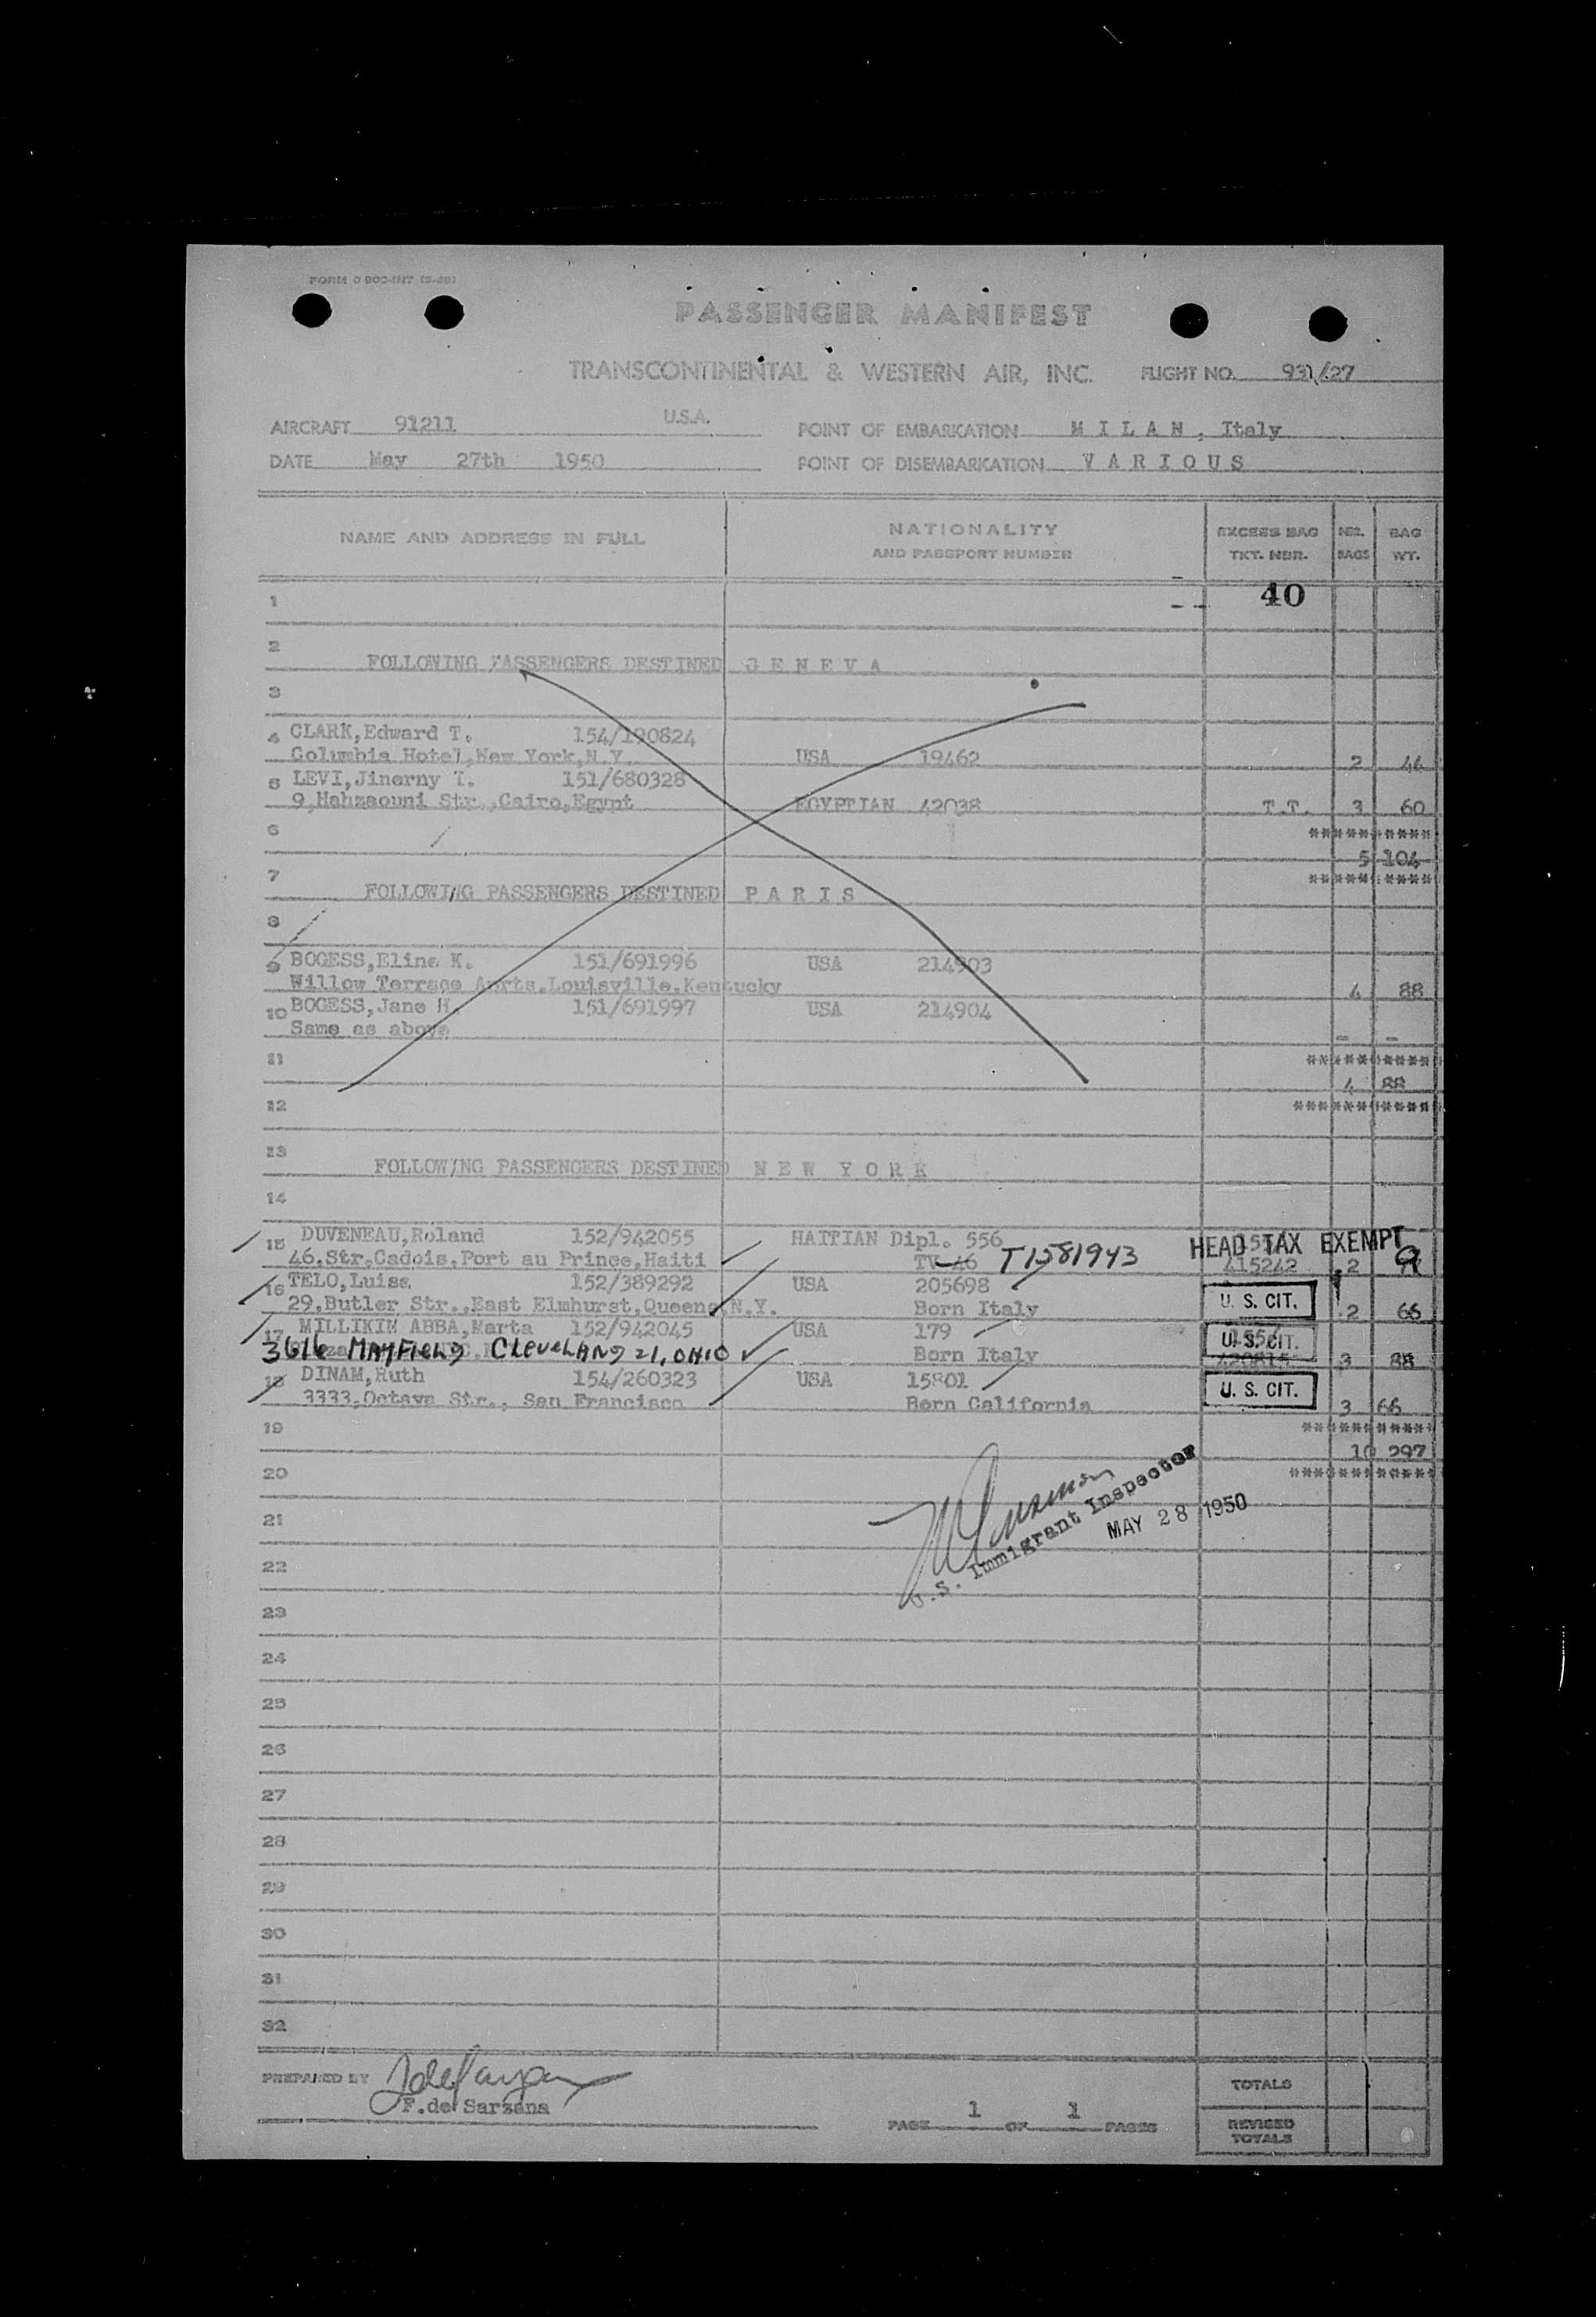 FORM O 800-INT (5-48)
PASSENGER MANIFEST
TRANSCONTINENTAL & WESTERN AIR, INC. FLIGHT NO. 931/27
AIRCRAFT 91211 U.S.A. POINT OF EMBARKATION M I L A N , Italy
DATE May 27th 1950 POINT OF DISEMBARKATION V A R I O U S
NAME AND ADDRESS IN FULL NATIONALITY AND PASSPORT NUMBER EXCESS BAG TKT. NBR. NBR. BAGS BAG WT.
1 40
2 FOLLOWING PASSENGERS DESTINED G E N E V A
3
4 CLARK,Edward T. 154/190824
Columbia Hotel,New York,N.Y. USA 19462 2 44
5 LEVI,Jinerny T. 151/680328
9,Mahzaouni Str.,Cairo,Egypt EGYPTIAN 42038 T.T. 3 60
6 **********
5 104
7 **********
FOLLOWING PASSENGERS DESTINED P A R I S
8
9 BOGESS,Eline K. 151/691996 USA 214903
Willow Terrace Aprts.Louisville.Kentucky 4 88
10 BOGESS,Jane H. 151/691997 USA 214904
Same as above - -
11 **********
4 88
12 ***********
13 FOLLOWING PASSENGERS DESTINED N E W Y O R K
14
15 DUVENEAU,Roland 152/942055 HAITIAN Dipl. 556 HEAD TAX EXEMPT
46.Str.Cadois.Port au Prince,Haiti T1581943 415242 2
16 TELO,Luisa 152/389292 USA 205698 U. S. CIT.
29,Butler Str.,East Elmhurst,Queens,N.Y. Born Italy 2 66
17 MILLIKIN ABBA,Marta 152/942045 USA 179 U. S. CIT.
3616 MAYFIELD CLEVELAND 21, OHIO Born Italy 3 88
18 DINAM,Ruth 154/260323 USA 15801 U. S. CIT.
3333,Octava Str., San Francisco Born California 3 66
19 **********
10 297
20 ***********
U.S. Immigrant Inspector
MAY 28 1950
21
22
23
24
25
26
27
28
29
30
31
32
PREPARED BY
F.del Sarzana
TOTALS
PAGE 1 OF 1 PAGES
REVISED TOTALS